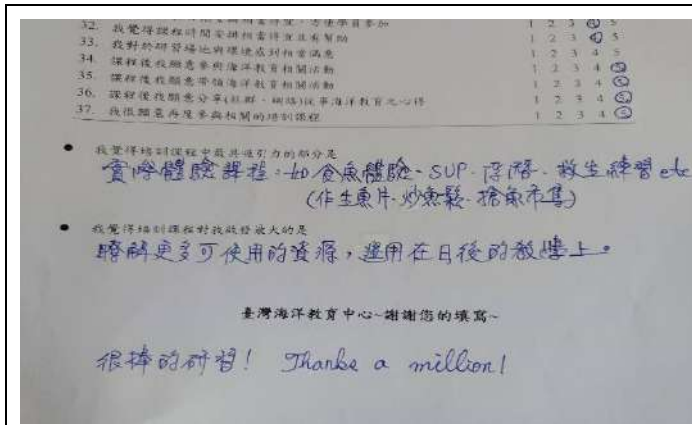 32. 我覺得課程時間安排相當得宜且有幫助 1 2 3 4 5
33. 我對於研習場地與環境感到相當滿意 1 2 3 4 5
34. 課程後我願意參與海洋教育相關活動 1 2 3 4 5
35. 課程後我願意帶領海洋教育相關活動 1 2 3 4 5
36. 課程後我願意分享(社群、網絡)從事海洋教育之心得 1 2 3 4 5
37. 我很願意再度參與相關的培訓課程 1 2 3 4 5
● 我覺得培訓課程中最具吸引力的部分是
實際體驗課程:如食魚體驗、SUP、浮潛、救生練習 etc
(作生魚片、炒魚鬆、搶魚市集)
● 我覺得培訓課程對我啟發最大的是
瞭解更多可使用的資源,運用在日後的教學上。
臺灣海洋教育中心~謝謝您的填寫~
很棒的研習! Thanks a million!